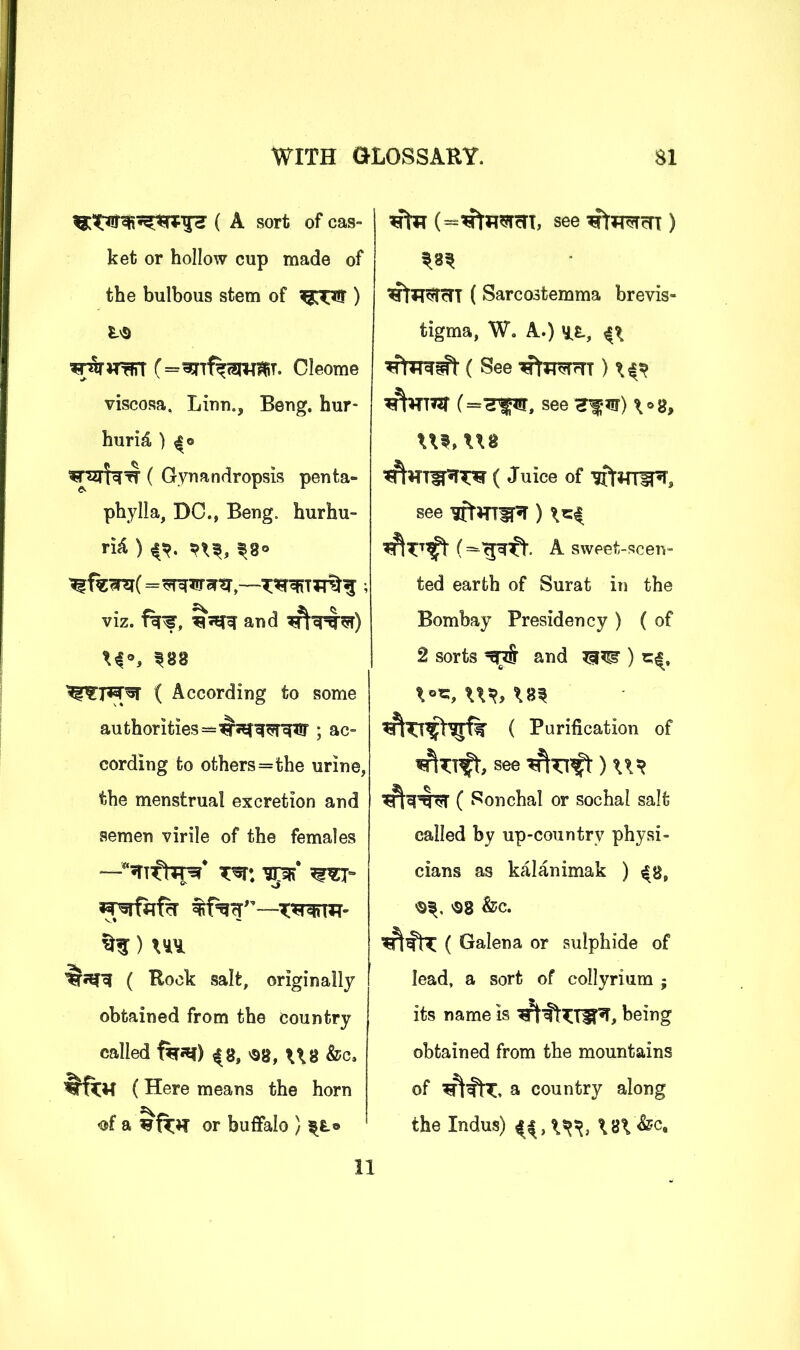 WITH GLOSSARY. 81
सूरणकन्दसम्पुट ( A sort of cas-
ket or hollow cup made of
the bulbous stem of सूरण )
९७
Cleome
viscosa, Linn., Beng. hur-
huriá ) ६०
( Gynandropsis penta-
phylla, DC., Beng. hurhu-
riá ) ६२. २१३, ३४०
viz. and सौवर्चल)
१६०, ३४४
( According to some
authorities= ; ac-
cording to others=the urine,
the menstrual excretion and
semen virile of the females
१५५
सैन्धव ( Rock salt, originally
obtained from the country
called सिन्धु) ६४, ७४, ११४ &c.
सैरिभ ( Here means the horn
of a सैरिभ or buffalo ) ३९०
सोम (=सोमलता, see सोमलता )
३४३
सोमलता ( Sarcostemma brevis-
tigma, W. A.) ५९, ६१
सोमवल्ली ( See सोमलता ) १६२
(=टङ्कण, see टङ्कण) १०४,
११३, ११४
( Juice of शोभाञ्जन,
see शोभाञ्जन ) १८६
सौराष्ट्री (=तुवरी. A sweet-scen-
ted earth of Surat in the
Bombay Presidency ) ( of
2 sorts and ) ८६,
१०८, ११२, १४३
सौराष्ट्रीशुद्धि ( Purification of
सौराष्ट्री, see सौराष्ट्री ) ११२
सौवर्चल ( Sonchal or sochal salt
called by up-country physi-
cians as kálánimak ) ६४,
७३. ७४ &c.
सौवीर ( Galena or sulphide of
lead, a sort of collyrium ;
its name is सौवीराञ्जन, being
obtained from the mountains
of सौवीर, a country along
the Indus) ६६, १२२, १४१ &c.
11